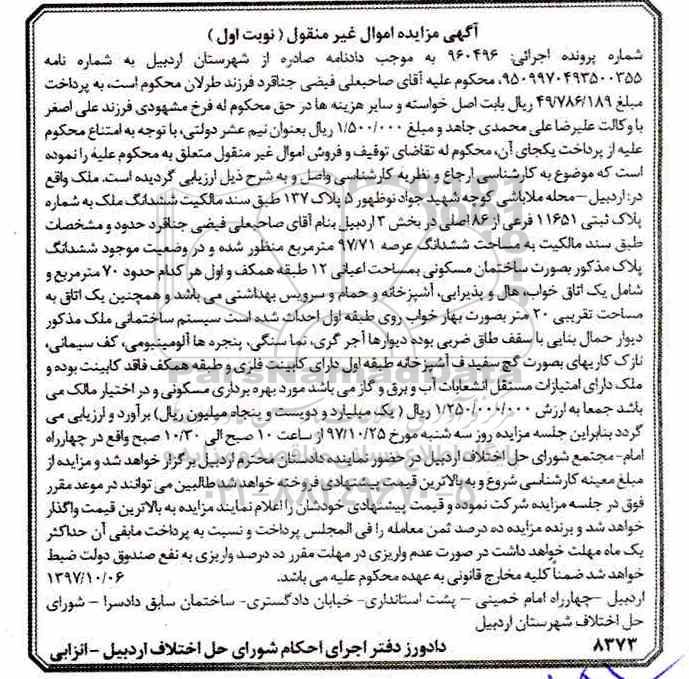 آگهی مزایده اموال غیر منقول (نوبت اول)
شماره پرونده اجرائی: ۹۶۰۴۹۶ به موجب دادنامه صادره از شهرستان اردبیل به شماره نامه
۹۵۰۹۹۷۰۴۹۳۵۰۰۳۵۵، محکوم علیه آقای صاحبعلی فیضی جناقرد فرزند طرلان محکوم است، به پرداخت
مبلغ ۴۹/۷۸۶/۱۸۹ ریال بابت اصل خواسته و سایر هزینه ها در حق محکوم له فرخ مشهودی فرزند علی اصغر
با وکالت علیرضا علی محمدی جاهد و مبلغ ۱/۵۰۰/۰۰۰ ریال بعنوان نیم عشر دولتی، با توجه به امتناع محکوم
علیه از پرداخت یکجای آن، محکوم له تقاضای توقیف و فروش اموال غیر منقول متعلق به محکوم علیه را نموده
است که موضوع به کارشناسی ارجاع و نظریه کارشناسی واصل و به شرح ذیل ارزیابی گردیده است. ملک واقع
در: اردبیل – محله ملاباشی کوچه شهید جواد نوظهور ۵ پلاک ۱۳۷ طبق سند مالکیت ششدانگ ملک به شماره
پلاک ثبتی ۱۱۶۵۱ فرعی از ۸۶ اصلی در بخش ۳ اردبیل بنام آقای صاحبعلی فیضی جناقرد حدود و مشخصات
طبق سند مالکیت به مساحت ششدانگ عرصه ۹۷/۷۱ مترمربع منظور شده و در وضعیت موجود ششدانگ
پلاک مذکور بصورت ساختمان مسکونی بمساحت اعیانی ۱۲ طبقه همکف و اول هر کدام حدود ۷۰ مترمربع و
شامل یک اتاق خواب، هال و پذیرایی، آشپزخانه و حمام و سرویس بهداشتی می باشد و همچنین یک اتاق به
مساحت تقریبی ۲۰ متر بصورت بهار خواب روی طبقه اول احداث شده است سیستم ساختمانی ملک مذکور
دیوار حمال بنایی با سقف طاق ضربی بوده دیوارها آجر گری، نما سنگی، پنجره ها آلومینیومی، کف سیمانی،
نازک کاریهای بصورت گچ سفید ف آشپزخانه طبقه اول دارای کابینت فلزی و طبقه همکف فاقد کابینت بوده و
ملک دارای امتیازات مستقل انشعابات آب و برق و گاز می باشد مورد بهره برداری مسکونی و در اختیار مالک می
باشد جمعا به ارزش ۱/۲۵۰/۰۰۰/۰۰۰ ریال (یک میلیارد و دویست و پنجاه میلیون ریال) برآورد و ارزیابی می
گردد بنابراین جلسه مزایده روز سه شنبه مورخ ۹۷/۱۰/۲۵ از ساعت ۱۰ صبح الی ۱۰/۳۰ صبح واقع در چهارراه
امام- مجتمع شورای حل اختلاف اردبیل در حضور نماینده دادستان محترم اردبیل برگزار خواهد شد و مزایده از
مبلغ معینه کارشناسی شروع و به بالاترین قیمت پیشنهادی فروخته خواهد شد طالبین می توانند در موعد مقرر
فوق در جلسه مزایده شرکت نموده و قیمت پیشنهادی خودشان را اعلام نمایند مزایده به بالاترین قیمت واگذار
خواهد شد و برنده مزایده ده درصد ثمن معامله را فی المجلس پرداخت و نسبت به پرداخت مابقی آن حداکثر
یک ماه مهلت خواهد داشت در صورت عدم واریزی در مهلت مقرر ده درصد واریزی به نفع صندوق دولت ضبط
خواهد شد ضمناً کلیه مخارج قانونی به عهده محکوم علیه می باشد. ۱۳۹۷/۱۰/۰۶
اردبیل –چهارراه امام خمینی – پشت استانداری- خیابان دادگستری- ساختمان سابق دادسرا – شورای
حل اختلاف شهرستان اردبیل
دادورز دفتر اجرای احکام شورای حل اختلاف اردبیل – انزابی ۸۳۷۳
ParsNamadData
۰۲۱-۸۸۳۴۹۶۷۰-۵